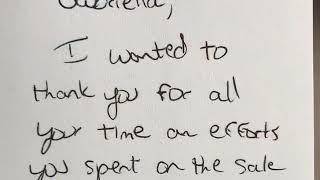 Gabriella,
I wanted to
thank you for all
your time an efforts
you spent on the sale